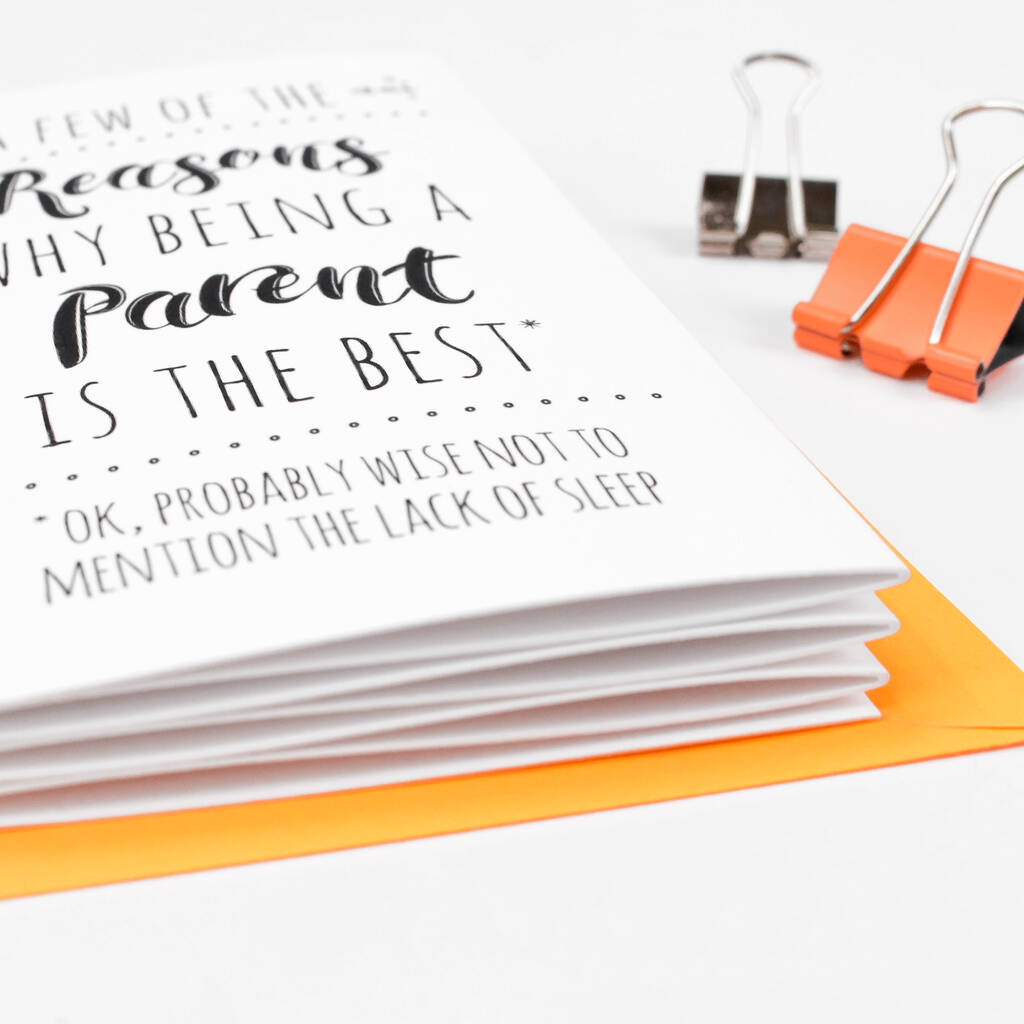 A FEW OF THE
Reasons
WHY BEING A
Parent
IS THE BEST*
*OK, PROBABLY WISE NOT TO
MENTION THE LACK OF SLEEP